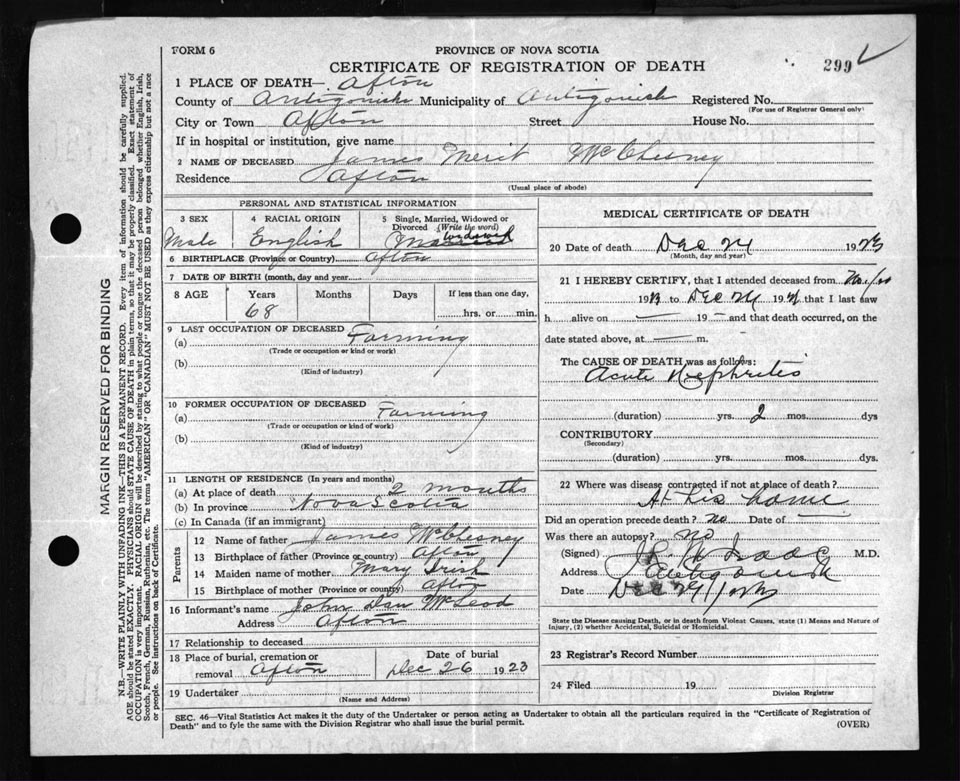 FORM 6
PROVINCE OF NOVA SCOTIA
CERTIFICATE OF REGISTRATION OF DEATH
299
1 PLACE OF DEATH— Afton
County of Antigonish Municipality of Antigonish Registered No.
(For use of Registrar General only)
City or Town Afton Street House No.
If in hospital or institution, give name
2 NAME OF DECEASED James Merit McChesney
Residence Afton
(Usual place of abode)
PERSONAL AND STATISTICAL INFORMATION
3 SEX Male
4 RACIAL ORIGIN English
5 Single, Married, Widowed or Divorced (Write the word)
Widowed
Married
6 BIRTHPLACE (Province or Country) Afton
7 DATE OF BIRTH (month, day and year)
8 AGE Years Months Days If less than one day,
68 hrs. or min.
9 LAST OCCUPATION OF DECEASED
(a) Farming
(Trade or occupation or kind or work)
(b)
(Kind of industry)
10 FORMER OCCUPATION OF DECEASED
(a) Farming
(Trade or occupation or kind or work)
(b)
(Kind of industry)
11 LENGTH OF RESIDENCE (In years and months)
(a) At place of death 2 months
(b) In province Nova Scotia
(c) In Canada (if an immigrant)
Parents
12 Name of father James McChesney
13 Birthplace of father (Province or country) Afton
14 Maiden name of mother Mary Irish
15 Birthplace of mother (Province or country) Afton
16 Informant's name John Dan McLeod
Address Afton
17 Relationship to deceased
18 Place of burial, cremation or removal Afton
Date of burial
Dec 26 1923
19 Undertaker
(Name and Address)
MEDICAL CERTIFICATE OF DEATH
20 Date of death Dec 24 1923
(Month, day and year)
21 I HEREBY CERTIFY, that I attended deceased from
19 to Dec 24 19 that I last saw
h alive on — 19 — and that death occurred, on the
date stated above, at — m.
The CAUSE OF DEATH was as follows:
Acute Nephritis
(duration) yrs. 2 mos. dys
CONTRIBUTORY
(Secondary)
(duration) yrs. mos. dys.
22 Where was disease contracted if not at place of death?
At his home
Did an operation precede death? no Date of —
Was there an autopsy? no
(Signed) M.D.
Address Antigonish
Date Dec
State the Disease causing Death, or in death from Violent Causes, state (1) Means and Nature of
Injury, (2) whether Accidental, Suicidal or Homicidal.
23 Registrar's Record Number
24 Filed 19
Division Registrar
SEC. 46—Vital Statistics Act makes it the duty of the Undertaker or person acting as Undertaker to obtain all the particulars required in the "Certificate of Registration of
Death" and to fyle the same with the Division Registrar who shall issue the burial permit.
(OVER)
MARGIN RESERVED FOR BINDING
N.B.—WRITE PLAINLY WITH UNFADING INK—THIS IS A PERMANENT RECORD. Every item of information should be carefully supplied.
AGE should be stated EXACTLY. PHYSICIANS should STATE CAUSE OF DEATH in plain terms, so that it may be properly classified. Exact statement of
OCCUPATION is very important. RACIAL ORIGIN will be described by stating to what people or tongue the deceased person belonged whether English, Irish,
Scotch, French, German, Russian, Ruthenian, etc. The terms "AMERICAN" OR "CANADIAN" MUST NOT BE USED as they express citizenship but not a race
or people. See instructions on back of Certificate.